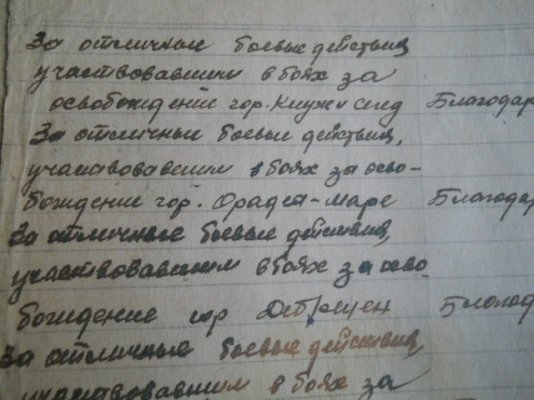 За отличные боевые действия
участвовавшим в боях за
освобождение гор. Клуж и след Благодар
За отличные боевые действия,
участвовавшим в боях за осво-
бождение гор. Орадеа-маре Благодар
За отличные боевые действия,
участвовавшим в боях за осво-
бождение гор Дебрецен Благод
За отличные боевые действия,
участвовавшим в боях за